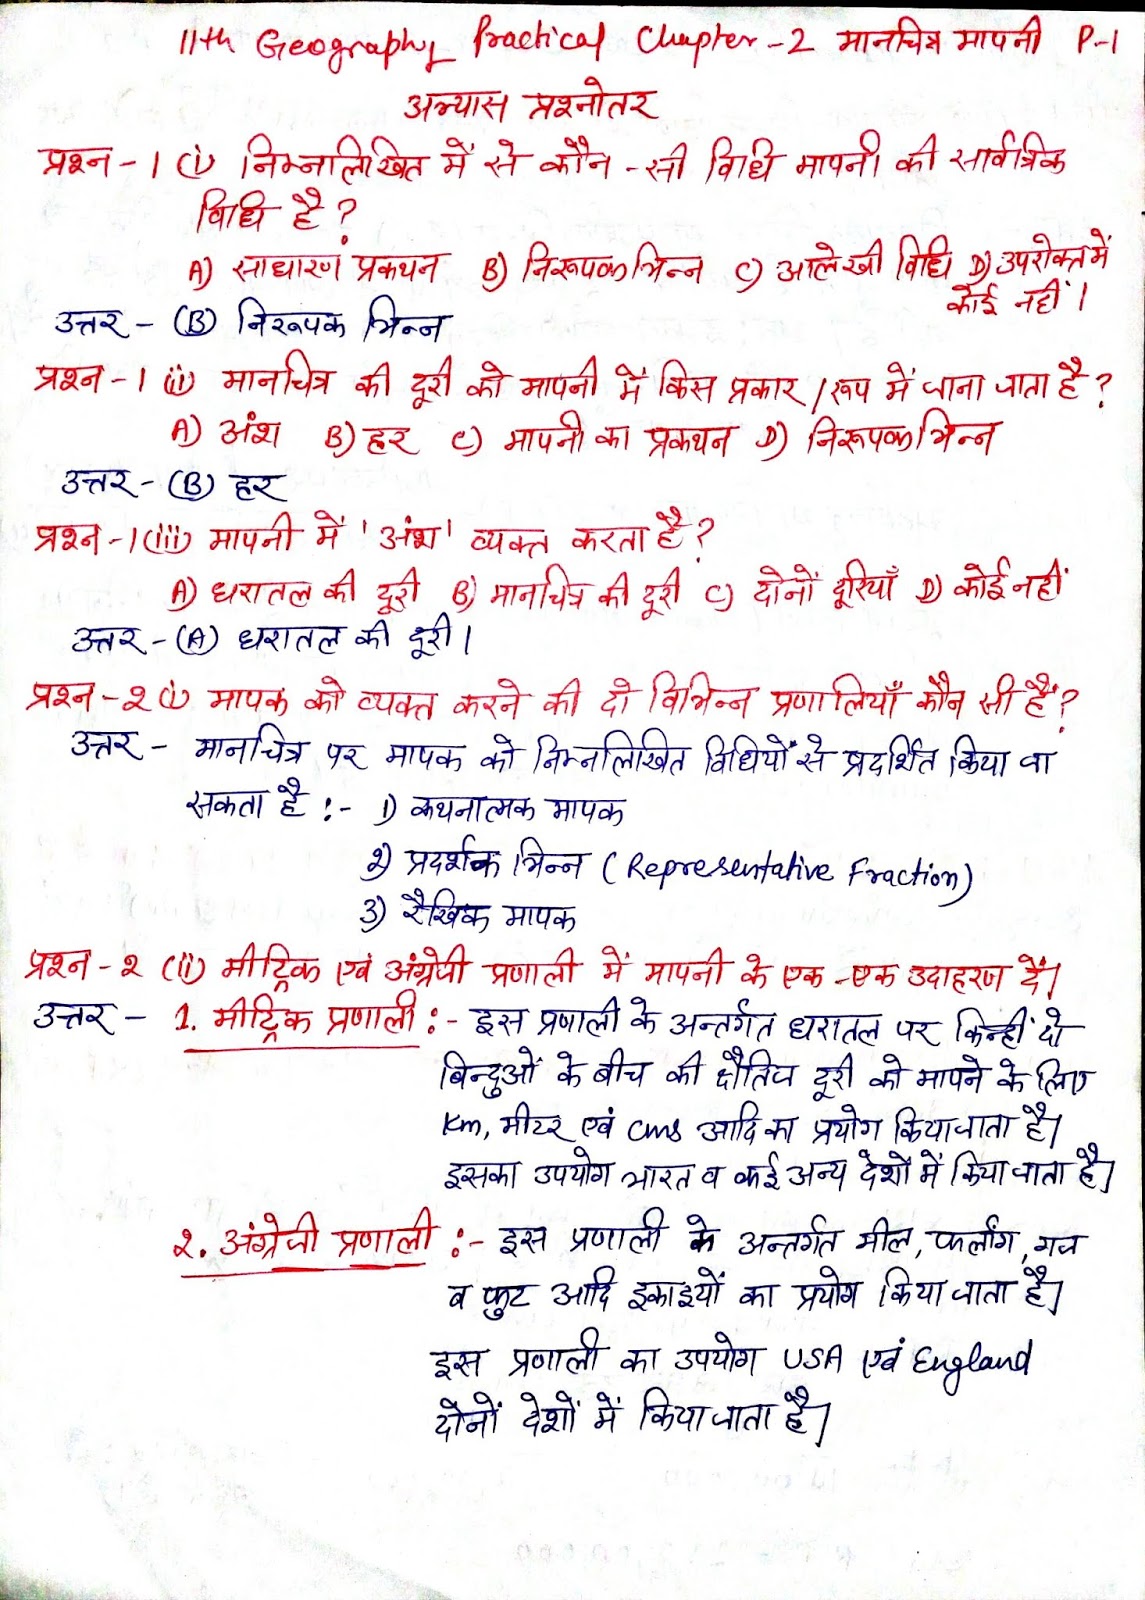 11th Geography Practical Chapter-2 मानचित्र मापनी P-1
अभ्यास प्रश्नोतर
प्रश्न-1 (i) निम्नलिखित में से कौन-सी विधि मापनी की सार्वत्रिक
विधि है?
A) साधारण प्रकथन B) निरूपक भिन्न C) आलेखी विधि D) उपरोक्त में
कोई नहीं।
उत्तर - (B) निरूपक भिन्न
प्रश्न-1 (ii) मानचित्र की दूरी को मापनी में किस प्रकार/रूप में जाना जाता है?
A) अंश B) हर C) मापनी का प्रकथन D) निरूपक भिन्न
उत्तर - (B) हर
प्रश्न-1(iii) मापनी में 'अंश' व्यक्त करता है?
A) धरातल की दूरी B) मानचित्र की दूरी C) दोनों दूरियाँ D) कोई नहीं
उत्तर - (A) धरातल की दूरी।
प्रश्न-2 (i) मापक को व्यक्त करने की दो विभिन्न प्रणालियाँ कौन सी हैं?
उत्तर - मानचित्र पर मापक को निम्नलिखित विधियों से प्रदर्शित किया जा
सकता है :- 1) कथनात्मक मापक
2) प्रदर्शक भिन्न (Representative Fraction)
3) रैखिक मापक
प्रश्न-2 (ii) मीट्रिक एवं अंग्रेजी प्रणाली में मापनी के एक-एक उदाहरण दें।
उत्तर - 1. मीट्रिक प्रणाली :- इस प्रणाली के अन्तर्गत धरातल पर किन्हीं दो
बिन्दुओं के बीच की क्षैतिज दूरी को मापने के लिए
Km, मीटर एवं cms आदि का प्रयोग किया जाता है।
इसका उपयोग भारत व कई अन्य देशों में किया जाता है।
2. अंग्रेजी प्रणाली :- इस प्रणाली के अन्तर्गत मील, फर्लांग, गज
व फुट आदि इकाइयों का प्रयोग किया जाता है।
इस प्रणाली का उपयोग USA एवं England
दोनों देशों में किया जाता है।